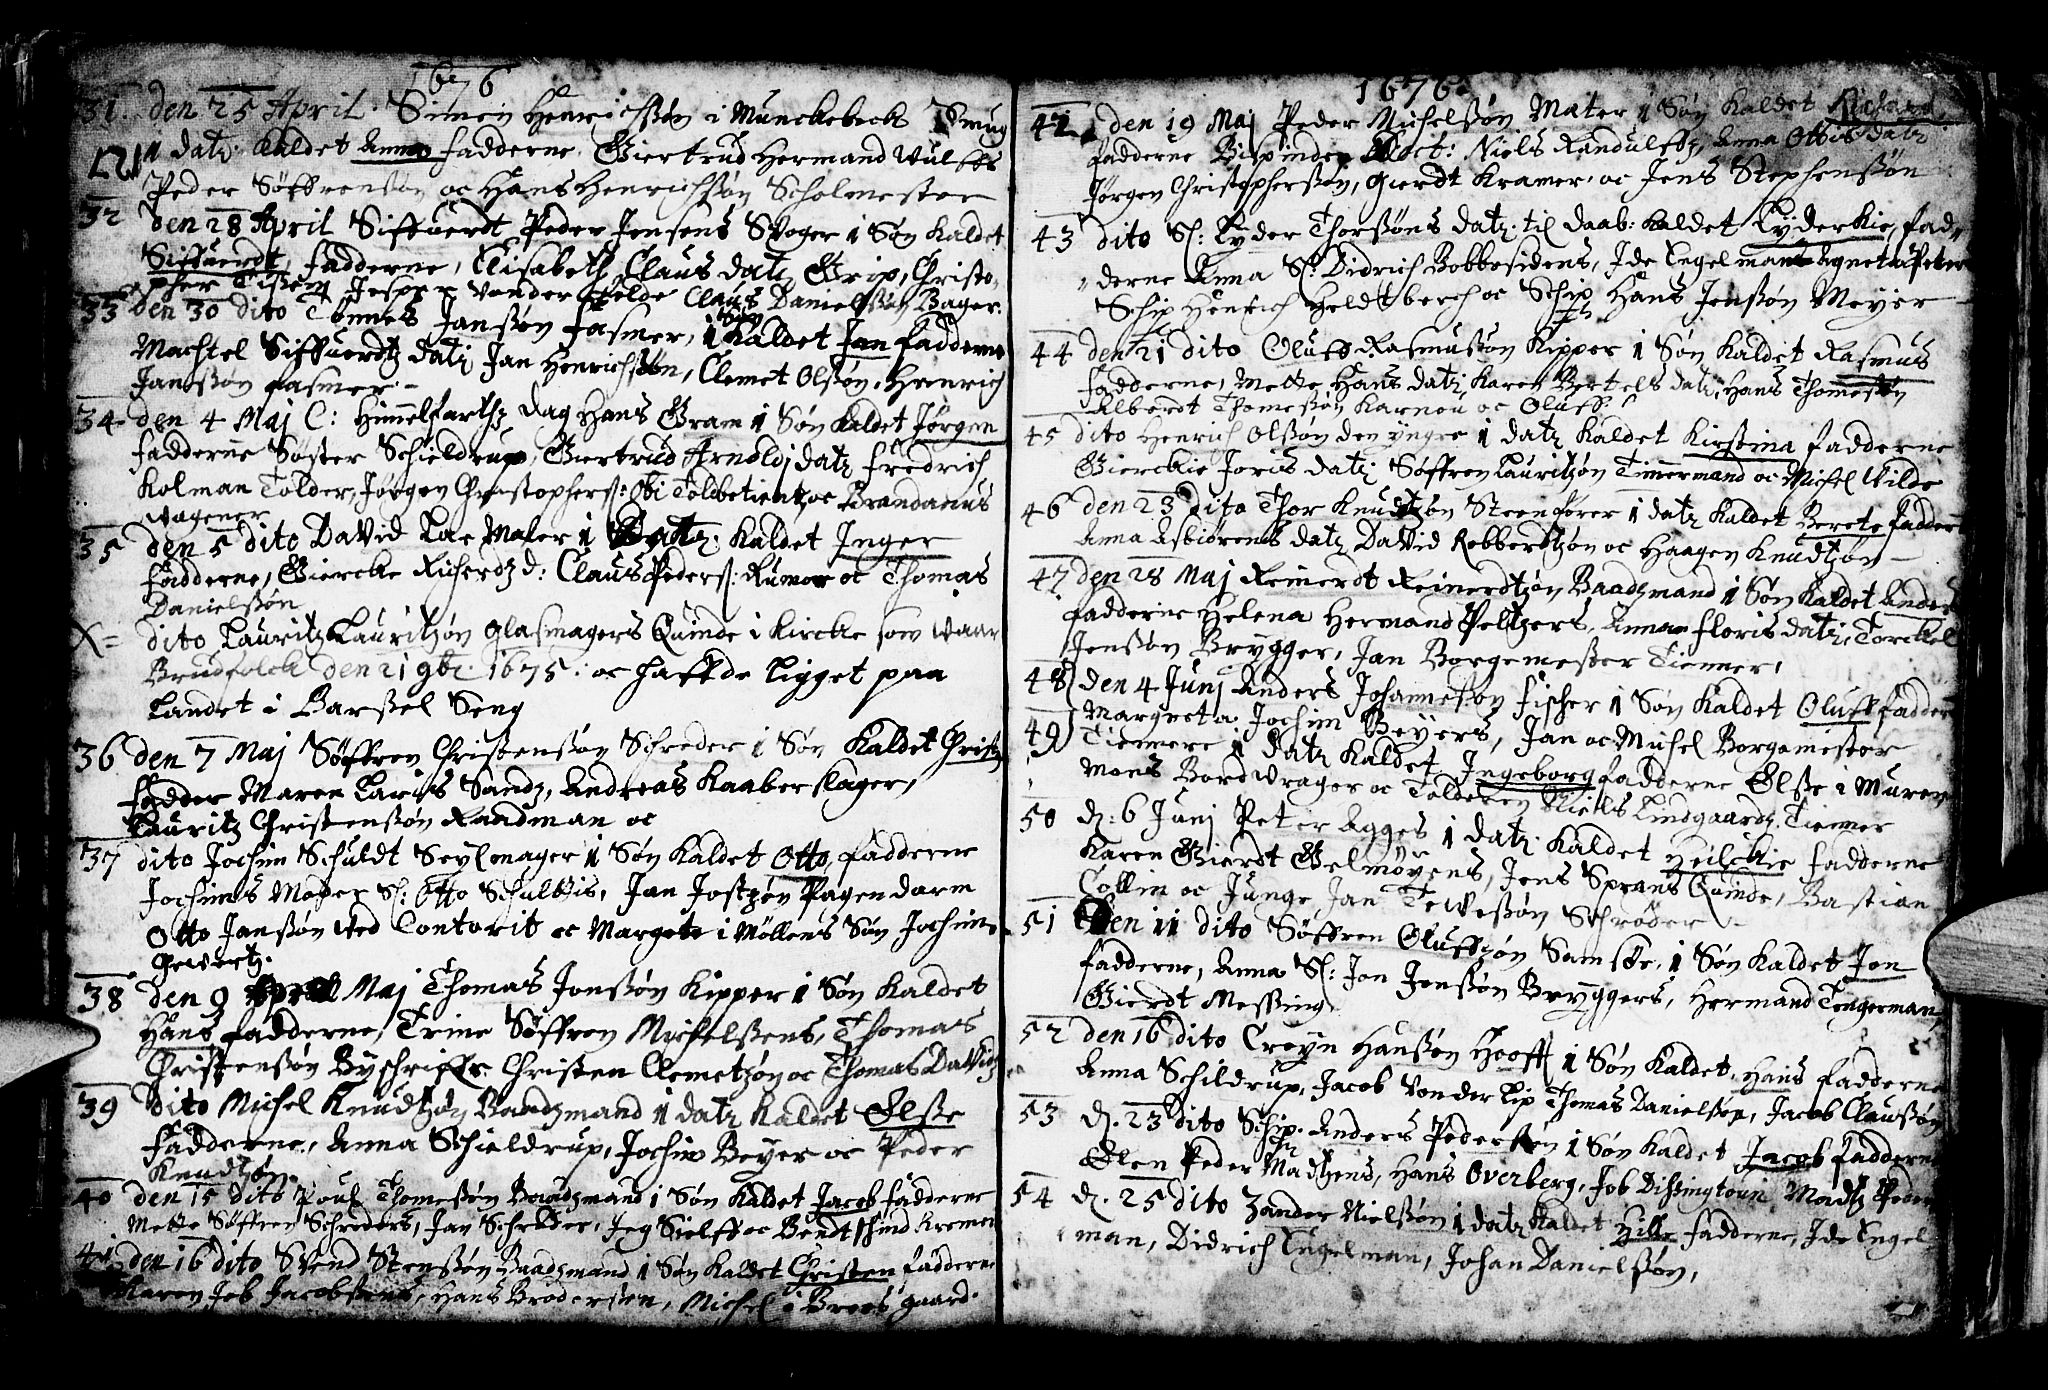 1676
31. den 25 April. Simen Henrichssøn i Munckebeck Smug
1 datz. kaldet Anna fadderne. Giertrud Hermand Wulffs
Peder Søffrenssøn oc Hans Henrichssøn Scholmester
32 den 28 April Siffuerdt Peder Jensens Svoger 1 Søn kaldet
Siffuerdt, fadderne, Elisabeth Claus datz Grip, Christo-
pher Tißen Jesper vonder felde Claus Danielssøn Bager.
33 den 30 dito Tønnes Janssøn fasmer, 1 Søn kaldet Jan fadderne
Machtel Siffuerdtz datz Jan Henrichssøn, Clemet Olssøn, Henrich
Janssøn fasmer.
34 den 4 Maj C: Himmelfarthz dag Hans Gram 1 Søn kaldet Jørgen
fadderne Søster Schieldrup, Giertrud Arnoldj datz fredrich
Kolman Tolder, Jørgen Christophers: Tolbetient oc Brandanus
wagener
35 den 5 dito David Lae Maler 1 Datz. kaldet Inger
fadderne, Giercke Richerdtz d: Claus Peders: Rumor oc Thomas
Danielssøn
X= dito Lauritz Lauritzøn glasmagers Quinde i kircke som waar
Brudfolck den 21 9br. 1675: oc haffde ligget paa
Landet i Barssel Seng
36 den 7 Maj Søffren Christenssøn Schreder 1 Søn kaldet Christen
fadder Maren Laris Sandz, Andreas kaaberslager,
Lauritz Christenssøn Raadman oc
37 dito Jochim Schuldt Seylmager 1 Søn kaldet Otto, fadderne
Jochims Moder Sl: Otto Schultis, Jan Jostzøn Pagendarm
Otto Janssøn ved Contorit oc Margete i Møllens Søn Jochim
Gewertz.
38 den 9 Maj Thomas Jonssøn kipper 1 Søn kaldet
Hans fadderne, Trine Søffren Michelssens, Thomas
Christenssøn Byschriffr Christen Clemetzøn oc Thomas Davidz
39 dito Michel Knudtzøn Baadzmand 1 datz kaldet Elsse
fadderne, Anna Schieldrup, Jochim Beyer oc Peder
Knudtzøn.
40 den 15 dito Poul Thomessøn Baadzmand 1 Søn kaldet Jacob fadderne
Mette Søffren Schreders, Jan Schrøder, Jeg Sielff oc Bendt Kremer
41 den 16 dito Svend Stenssøn Baadzmand 1 Søn kaldet Christen fadderne
Maren Job Jacobssens, Hans Brodersen, Michel i Brees gaard.
1676
42 den 19 Maj Peder Michelssøn Mater 1 Søn kaldet Richard,
fadderne Bispinden, Doct: Niels Randulffz, Anna Ottis datz
Jørgen Christopherssøn, Gierdt Kramer oc Jens Stephenssøn
43 dito Sl: Lyder Thorssøns datz. til daab: kaldet Lyderkie, fad-
derne Anna Sl: Didrich Bobbesidens, Ide Engelmans Agneta Peter
Schip Henrich Heldtberch oc Schip Hans Jenssøn Meyer
44 den 21 dito Oluff Rasmussøn Kipper 1 Søn kaldet Rasmus
fadderne, Mette Hans datz, Karen Bertels datz, Hans Thomessøn
Alberdt Thomessøn Karnou oc Oluff
45 dito Henrich Olssøn den yngre 1 datz kaldet Kirstina fadderne
Gierckie Joris datz. Søffren Lauritzøn Timmermand oc Michel Wilde
46 den 23 dito Thor Knudtzøn Steenfører 1 datz kaldet Berete fadderne
Anna Asbiørens datz David Robberdtzøn oc Haagen Knudtzøn
47 den 28 Maj Reinerdt Reinerdtzøn Baadzmand 1 Søn kaldet Anders
fadderne Helena Hermand Peltzers, Anna floris datz, Torckel
Jenssøn Brygger, Jan Borgemester Tienner,
48 den 4 Junj Anders Johannessøn fischer 1 Søn kaldet Oluff fadderne
Margreta Jochim Beyers, Jan oc Michel Borgamester
49 Tiennere 1 datz kaldet Ingeborg fadderne Elsse i Muren
Mons Bordvrager oc Tolderen Niels Lindgaardz Tienner
50 d. 6 Junj Peter Agges 1 datz. kaldet Heilckie fadderne
Karen Gierdt Gelmøyens, Jens Sprans Quinde, Bastian
Collin oc Junge Jan Tewessøn Schrøder
51 Den 11 dito Søffren Oluffzøn Samske, 1 Søn kaldet Jon
fadderne, Anna Sl: Jon Jenssøn Bryggers, Hermand Tengerman,
Gierdt Messing
52 den 16 dito Creyn Hanssøn Hooff 1 Søn kaldet Hans fadderne
Anna Schildrup, Jacob vonderlip Thomas Danielssøn, Jacob Claussøn
53 d. 23 dito Schip. Anders Pederssøn 1 Søn kaldet Jacob fadderne
Elen Peder Madtzens, Hans Overberg, Job Dissingtoun Madtz Peders
54 d. 25 dito Zander Nielssøn 1 datz kaldet Hille fadderne, Ide Engel-
man, Didrich Engelman, Johan Danielssøn,